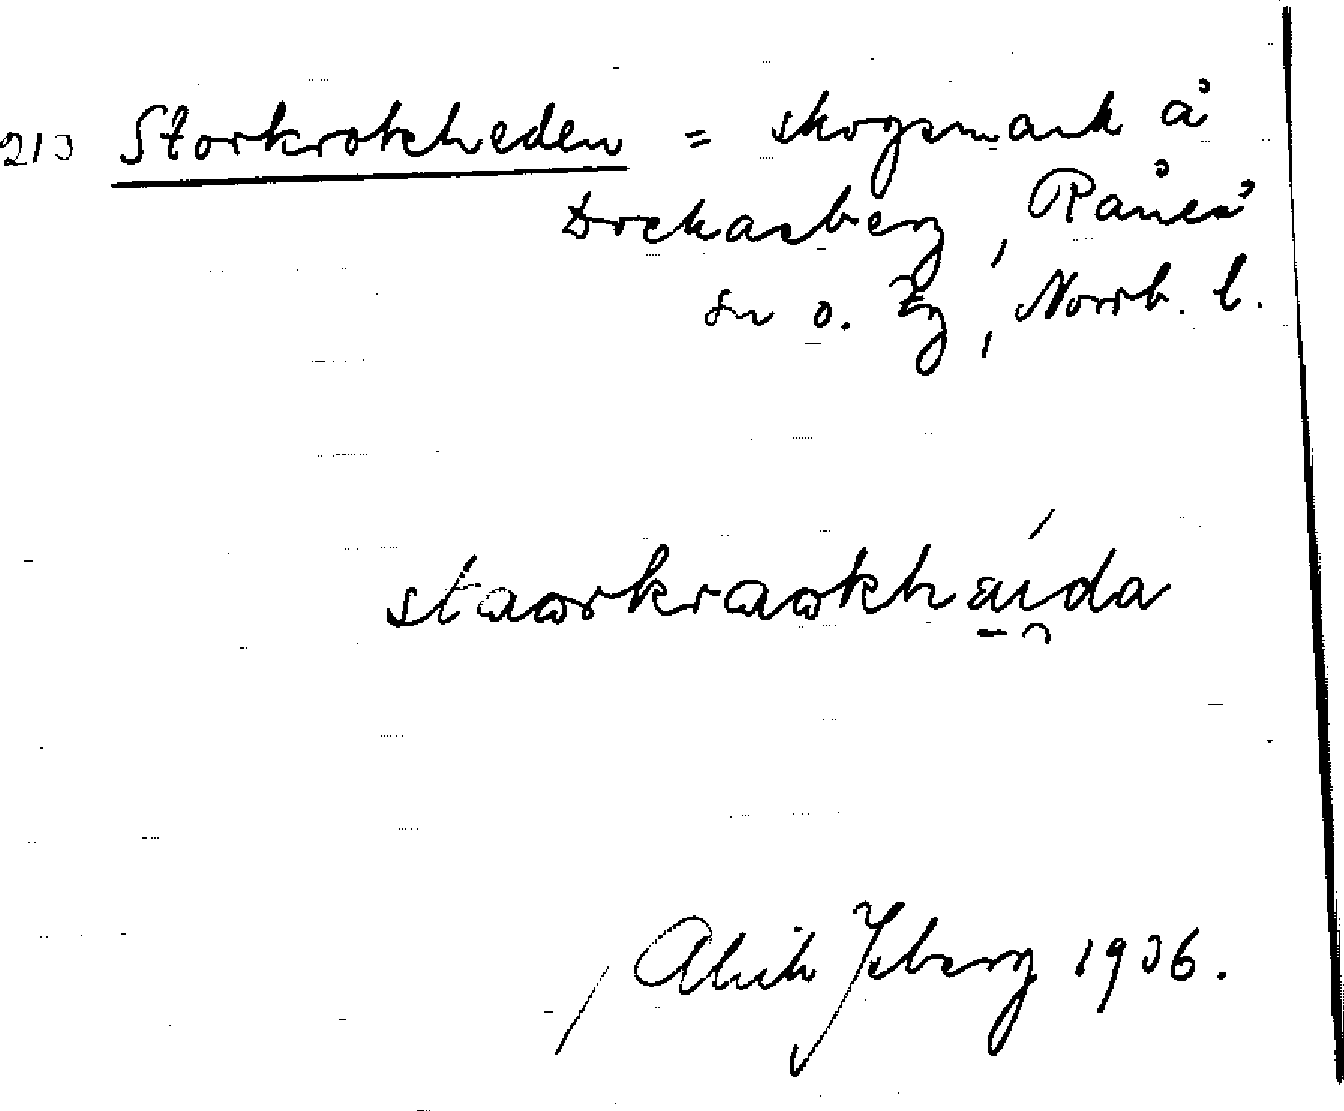 213 Storkrokheden = skogsmark å
Orrkasberg, Råneå
sn o. tg, Norrb. l.
staωrkraωkháida
Alrik Isberg 1936.